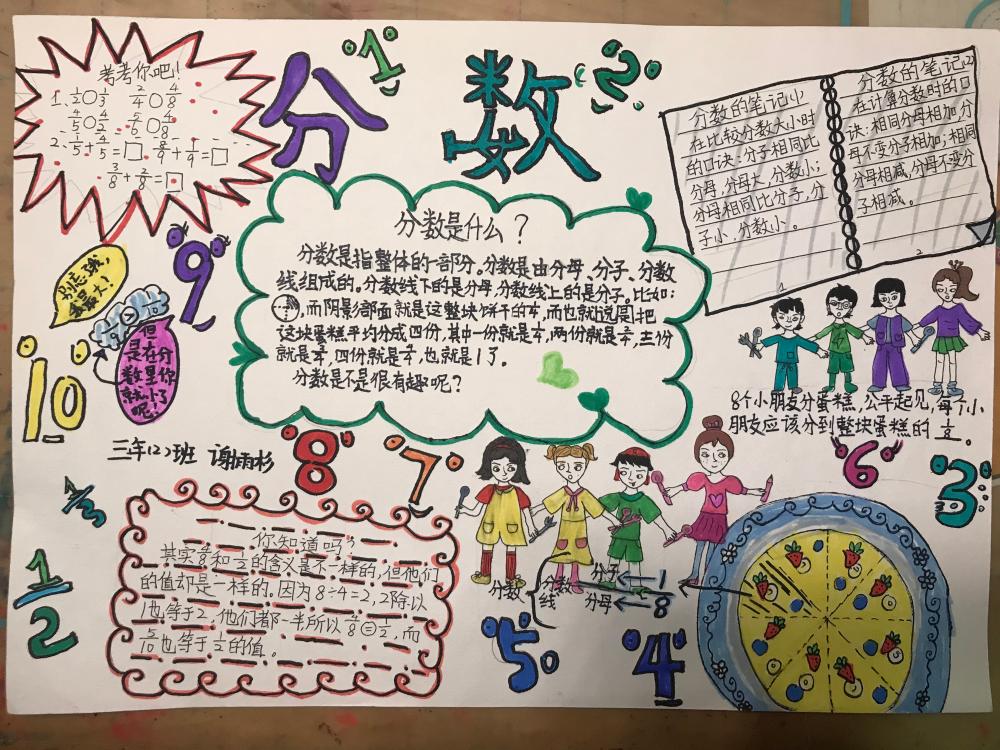 分数
1
2
考考你吧!
1、1/2○1/3 2/4○4/8
4/5○4/2 5/6○4/8
2、1/5+4/5=□ 8/9+1/9=□
3/8+2/8=□
分数的笔记(1)
在比较分数大小时
的口诀:分子相同比
分母,分母大,分数小;
分母相同比分子,分
子小,分数小。
1
分数的笔记(2)
在计算分数时的口
诀:相同分母相加,分
母不变分子相加;相同
分母相减,分母不变分
子相减。
2
分数是什么?
分数是指整体的一部分。分数是由分母、分子、分数
线组成的。分数线下的是分母,分数线上的是分子。比如:
,而阴影部面就是这整块饼干的,而也就说是把
这块蛋糕平均分成四份,其中一份就是,两份就是,三份
就是,四份就是,也就是1了。
分数是不是很有趣呢?
9
别忘哦,
最大!
但
是在分
数里你
就小了
呢!
10
三年(2)班 谢雨杉
8
7
8个小朋友分蛋糕,公平起见,每个小
朋友应该分到整块蛋糕的1/8。
6
3
1/3
1/2
你知道吗?
其实和1/2的含义是不一样的,但他们
的值却是一样的。因为8÷4=2,2除以
1也等于2,他们都一半所以4/8=1/2,而
5/10也等于1/2的值。
分数
分数
线
分子←1
分母←8
5
4